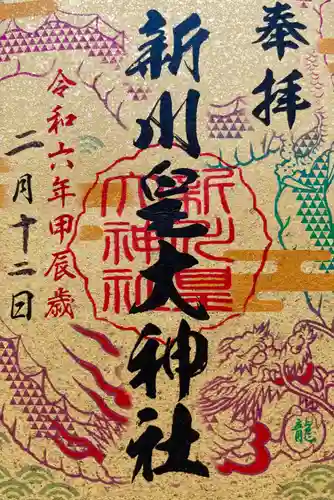 奉拝
新川皇大神社
令和六年甲辰歳
二月十二日
新川皇
大神社
龍